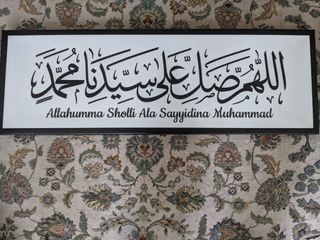 اللَّهُمَّ صَلِّ عَلَى سَيِّدِنَا مُحَمَّدٍ
Allahumma Sholli Ala Sayyidina Muhammad